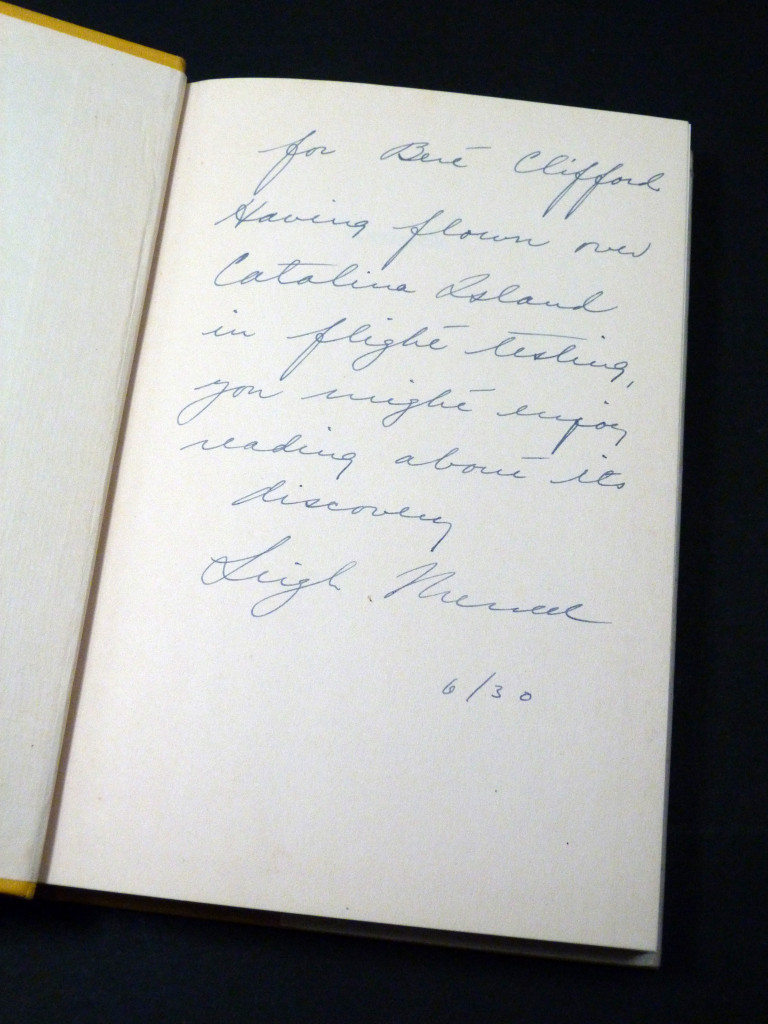 for Bert Clifford
Having flown over
Catalina Island
in flight testing,
you might enjoy
reading about its
discovery
Leigh Merrell
6/30